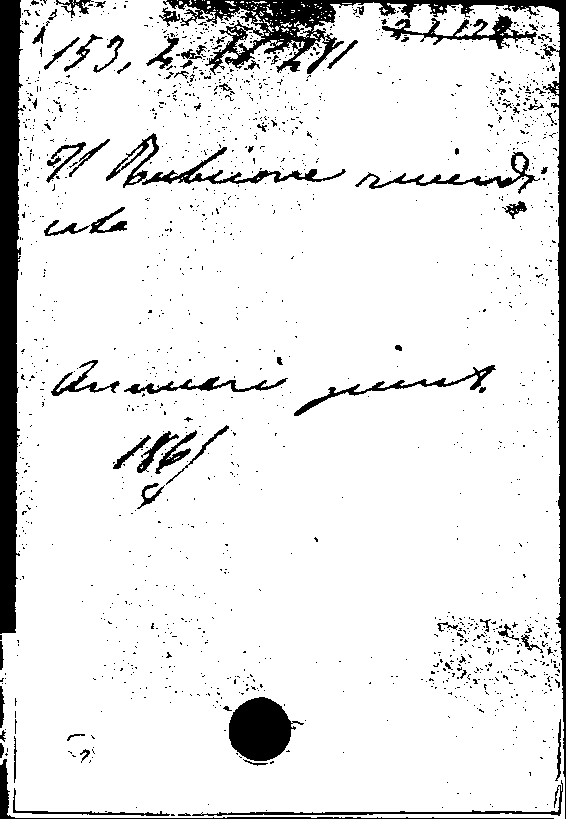 153, 2, 15 281
Il Rubicone rivendi
cato
Annuari giunt.
1865